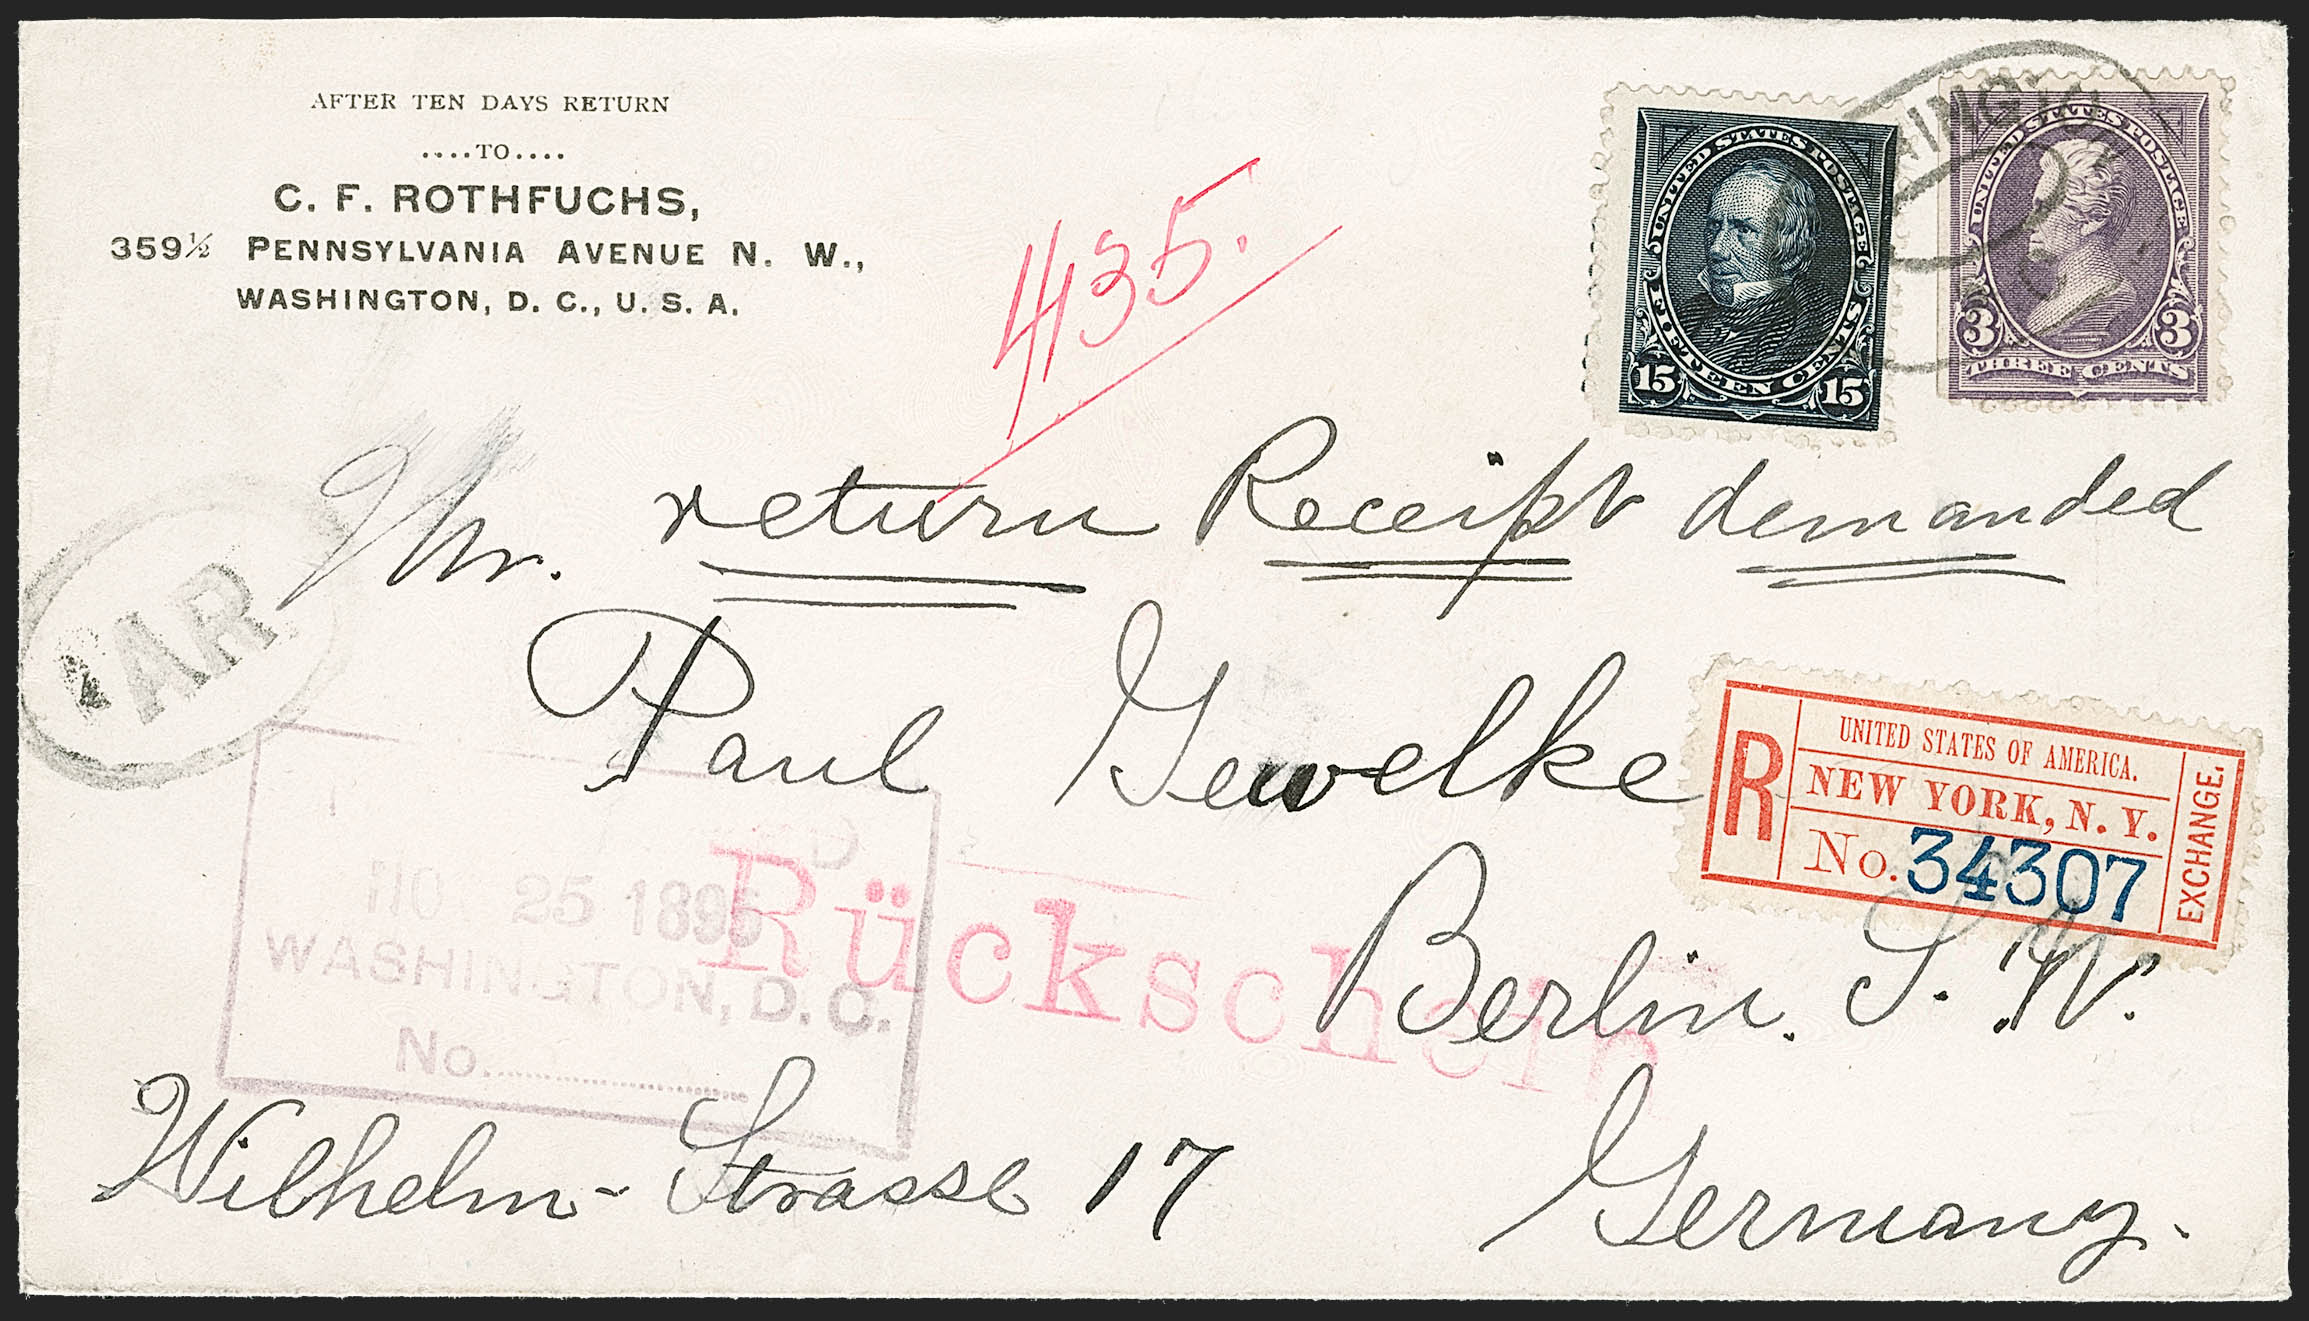 AFTER TEN DAYS RETURN
....TO....
C. F. ROTHFUCHS,
359½ PENNSYLVANIA AVENUE N. W.,
WASHINGTON, D. C., U. S. A.
435.
UNITED STATES POSTAGE
FIFTEEN CENTS
15 15
UNITED STATES POSTAGE
3 3
THREE CENTS
return Receipt demanded
Mr.
AR
Paul Gewelke
UNITED STATES OF AMERICA.
R NEW YORK, N. Y.
No. 34307
EXCHANGE.
25 1895
WASHINGTON, D. C.
No.
Rückschein
Berlin. S. W.
Wilhelm-Strasse 17
Germany.